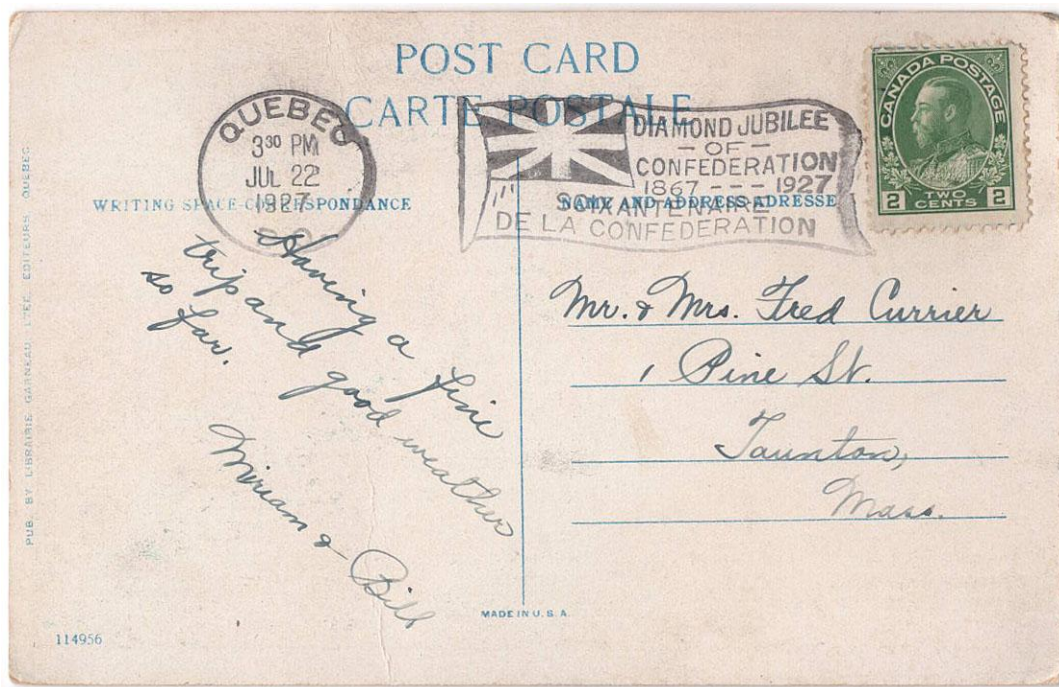 POST CARD
CARTE POSTALE
QUEBEC
3³⁰ PM
JUL 22
1927
DIAMOND JUBILEE
- OF -
CONFEDERATION
1867 --- 1927
SOIXANTENAIRE
DE LA CONFEDERATION
CANADA POSTAGE
2 TWO CENTS 2
WRITING SPACE-CORRESPONDANCE
NAME AND ADDRESS-ADRESSE
Having a fine
trip and good weather
so far.
Miriam & Bill
Mr. & Mrs. Fred Currier
1 Pine St.
Taunton,
Mass.
PUB. BY LIBRAIRIE GARNEAU LTEE. EDITEURS, QUEBEC
MADE IN U.S.A.
114956